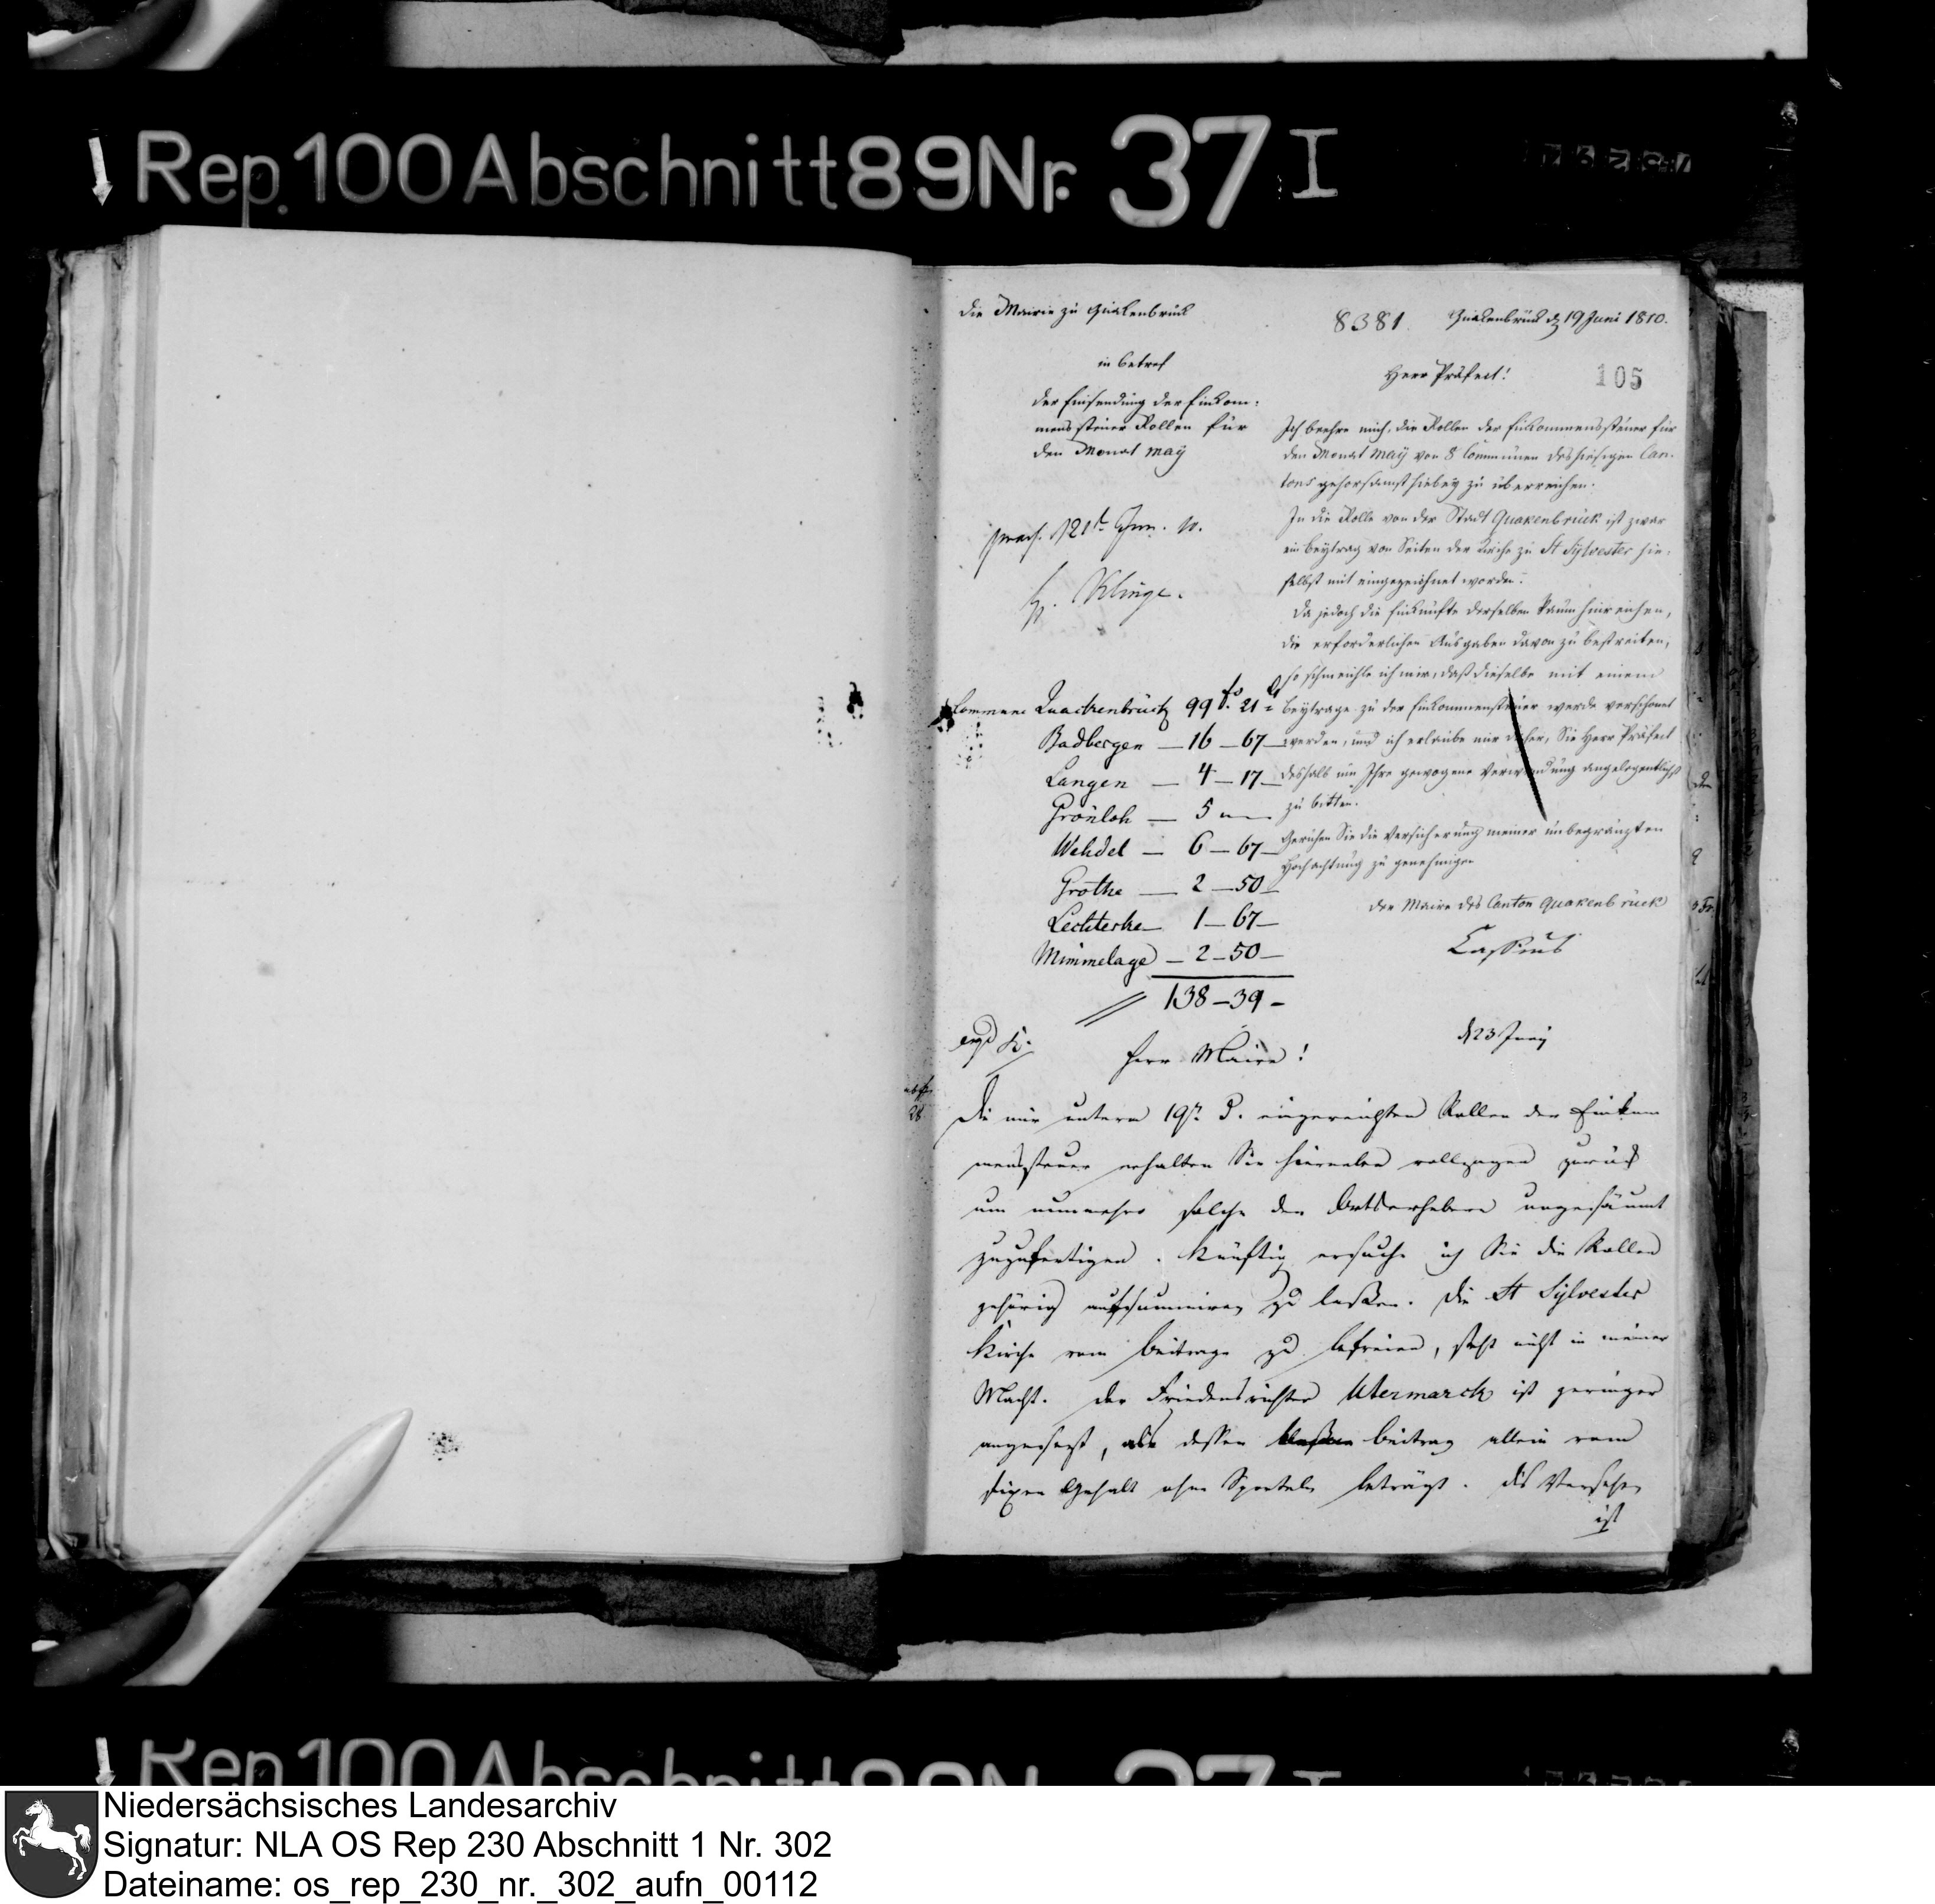 Rep. 100 Abschnitt 89 Nr. 37 I
Die Mairie zu Quakenbrück
8381. Quakenbrück d 19 Juni 1810.
in betref
der Einsendung der Einkom-
mens steuer Rollen für
den Monat may
Herr Präfect!
105
Ich beehre mich, die Rollen der Einkommenssteuer für
den Monat May von 8 Communen des hiesigen Can-
tons gehorsamst hiebey zu überreichen.
In die Rolle von der Stadt Quakenbrück ist zwar
ein beytrag von Seiten der Kirche zu St Sylvester hie-
selbst mit eingezeichnet worden.
Da jedoch die Einkünfte derselben kaum hinreichen,
die erforderlichen Ausgaben davon zu bestreiten,
so schmeichle ich mir, daß dieselbe mit einem
beytrage zu der Einkommensteuer werde verschonet
werden, und ich erlaube mir daher, Sie Herr Präfect
deshalb um Ihre gewogene Verwendung angelegentlichst
zu bitten.
Geruhen Sie die Versicherung meiner unbegränzten
Hochachtung zu genehmigen
der Maire des Canton Quakenbrück
praes. 21t Jun. 10.
H. Klinge.
Commune Quackenbrück 99 fr. 21 c
Badbergen — 16 — 67 —
Langen — 4 — 17 —
Grönloh — 5 — —
Wehdel — 6 — 67 —
Grothe — 2 — 50 —
Lechterke — 1 — 67 —
Mimmelage — 2 — 50 —
138 — 39 —
d 23 Juny
Herr Maire!
Die mir unterm 19ten d. eingereichten Rollen der Einkom
menssteuer erhalten Sie hierneben vollzogen zurück
um nunmehro solche den Ortserhebern ungesäumt
zuzufertigen. Künftig ersuche ich Sie die Rollen
gehörig aufsummiren zu laßen. Die St Sylvester
Kirche vom Beitrage zu befreien, steht nicht in meiner
Macht. Der Friedensrichter Utermarck ist geringer
angesetzt, als dessen Beitrag allein vom
fixen Gehalt ohne Sporteln beträgt. Dis Versehen
ist
Rep. 100 Abschnitt 89 Nr. 37 I
Niedersächsisches Landesarchiv
Signatur: NLA OS Rep 230 Abschnitt 1 Nr. 302
Dateiname: os_rep_230_nr._302_aufn_00112